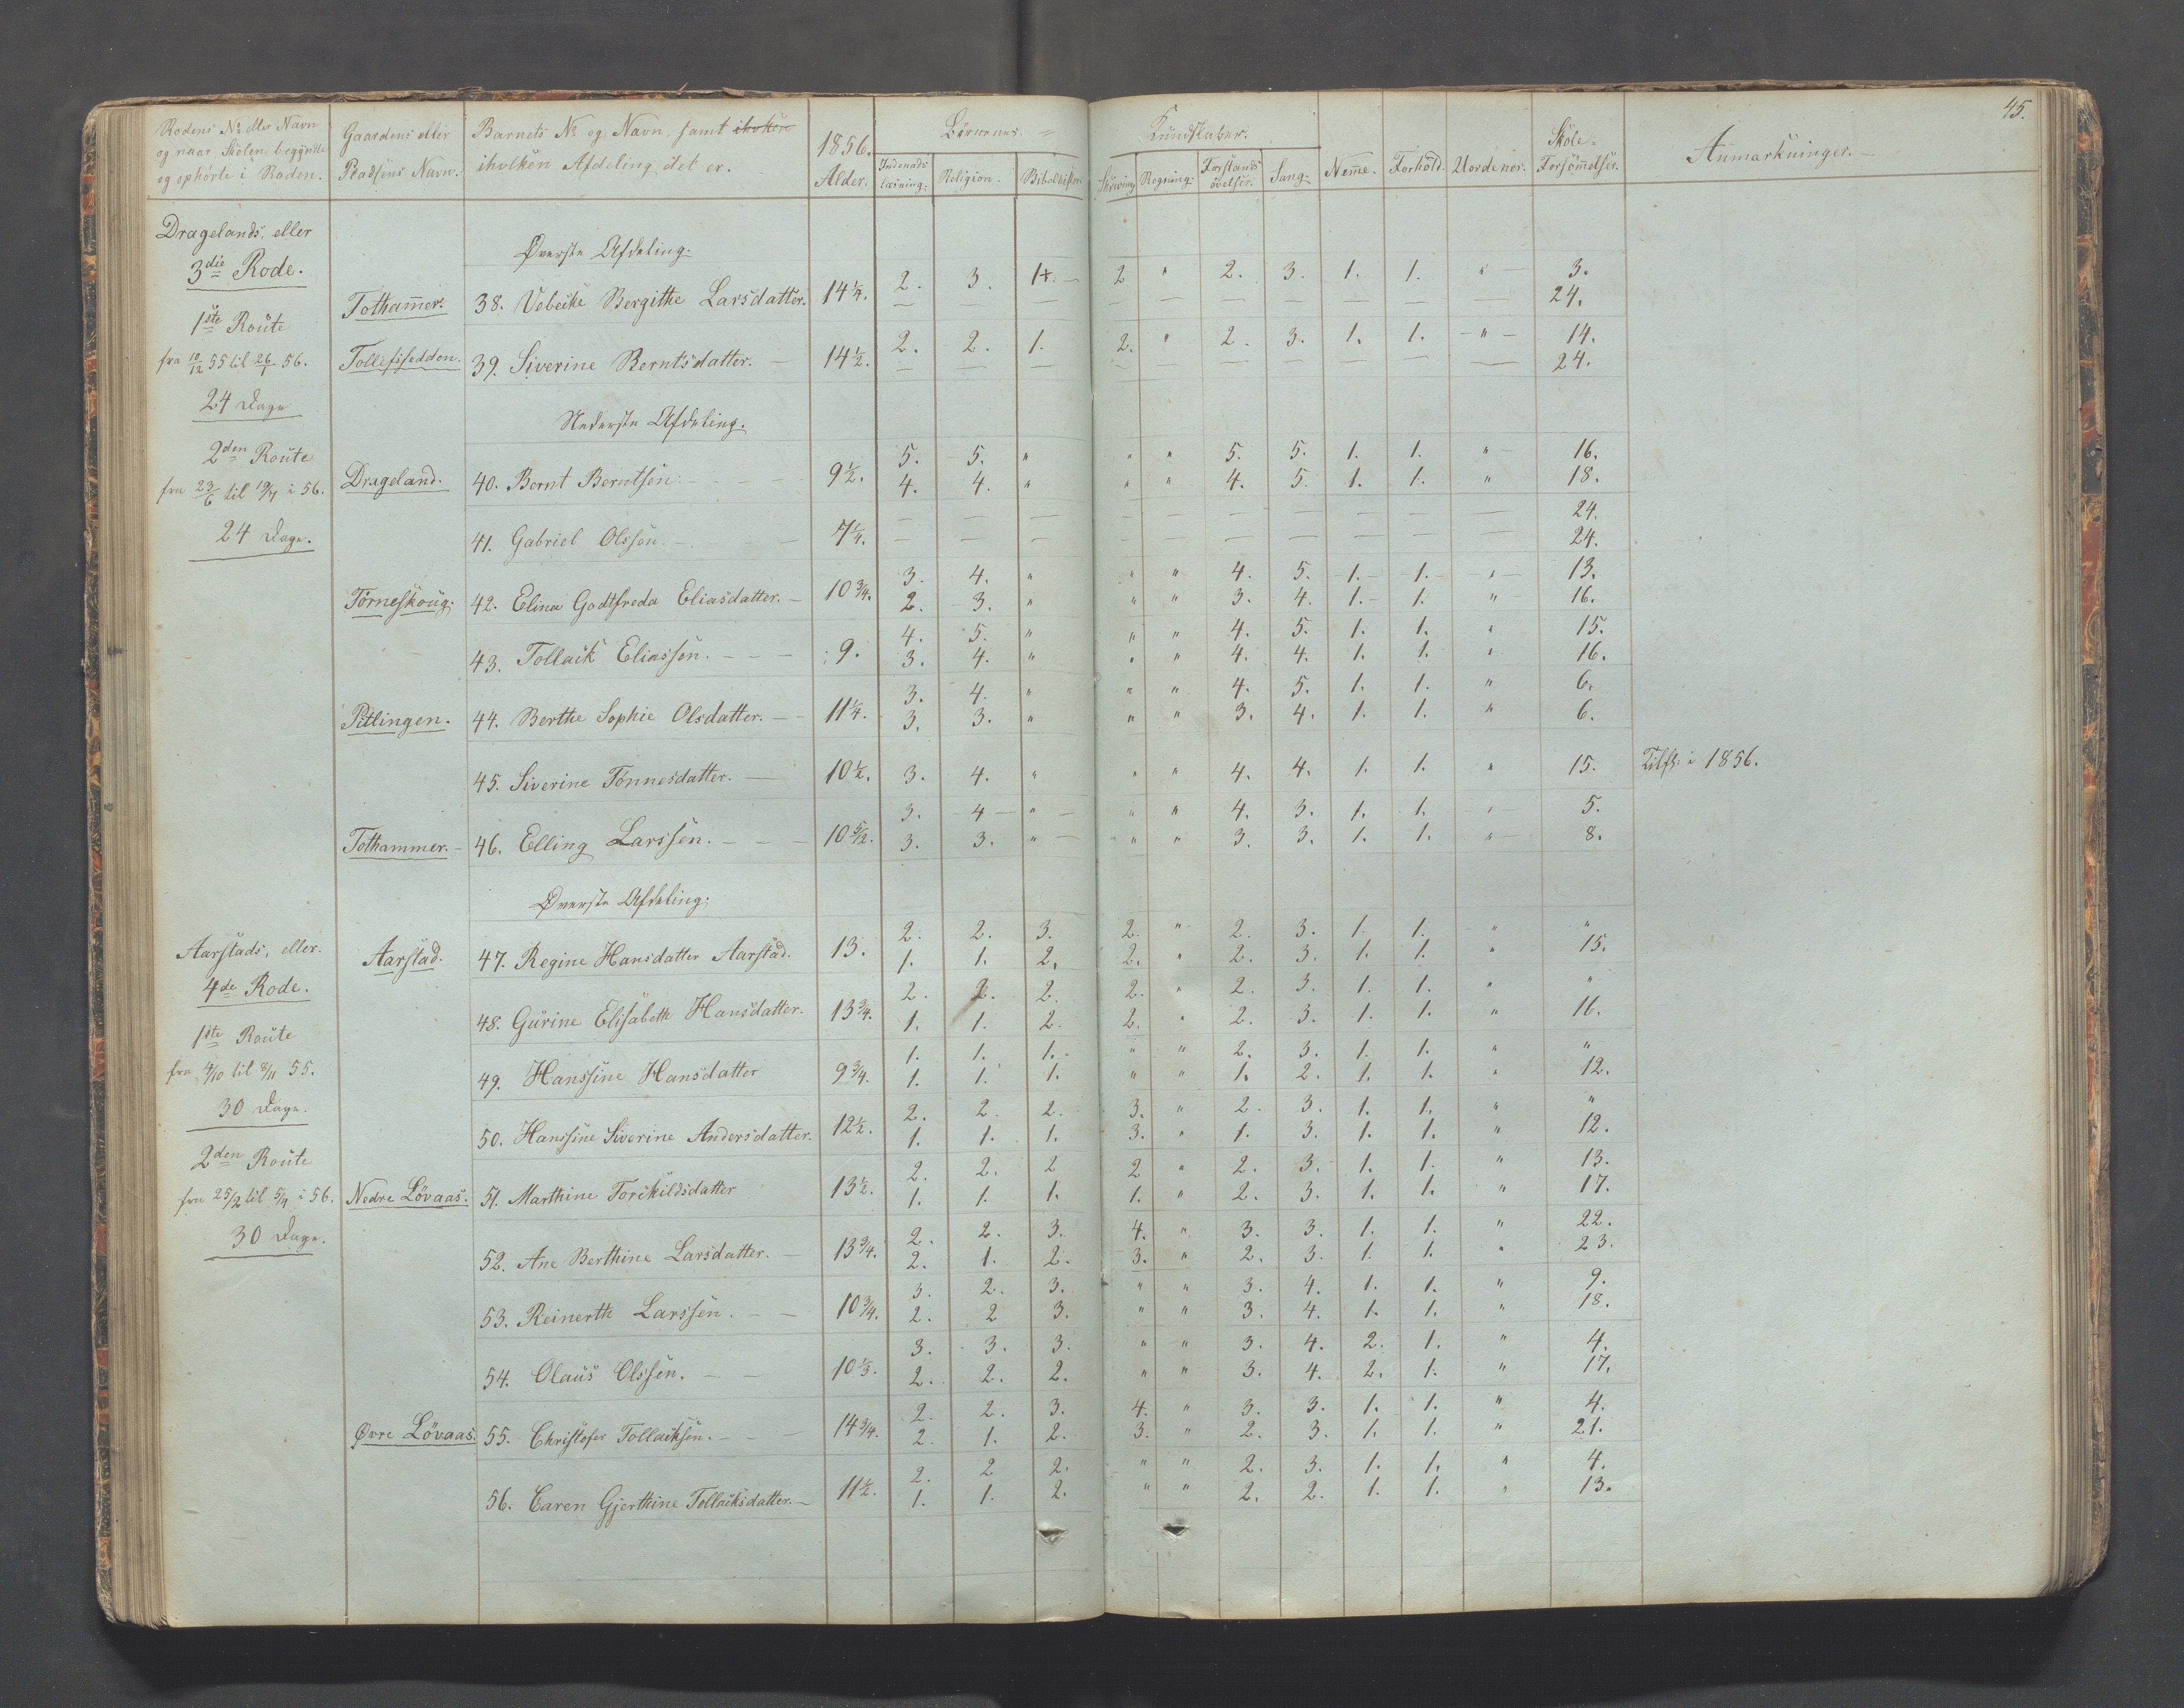 45.
Rodens No eller Navn og naar Skolen begyndte og ophörte i Roden. | Gaardens eller Pladsens Navn. | Barnets No og Navn, samt ihvken ihvlken Afdeling det er. | 1856. Alder. | Börnenes = Kundskaber. | Nem̅e. | Forhold. | Uordener. | Skole= Forsöm̅elser. | Anmærkninger.
Indenadslæsning: | Religion. | Bibelhistorie | Skrivning | Regning: | Forstands övelser. | Sang:
Dragelands, eller
3die Rode.
1ste Route
fra 10/12 55 til 26/1 56.
24 Dage
2den Route
fra 23/6 til 19/7 i 56.
24 Dage.
Øverste Afdeling.
Totham̅er. | 38. Vebecke Bergithe Larsdatter. | 14 1/4. | 2. | 3. | 1. | 2 | " | 2. | 3. | 1. | 1. | " | 3.
— | — | — | — | — | — | — | — | — | — | 24.
Tollefsfedden. | 39. Siverine Berntsdatter. | 14 1/2. | 2. | 2. | 1. | 2. | " | 2. | 3. | 1. | 1. | " | 14.
— | — | — | — | — | — | — | — | — | — | 24.
Nederste Afdeling.
Drageland. | 40. Bernt Berntsen. | 9 1/2. | 5. | 5. | " | " | " | 5. | 5. | 1. | 1. | " | 16.
4. | 4. | " | " | " | 4. | 5. | 1. | 1. | " | 18.
41. Gabriel Olssen. | 7 1/4. | — | — | — | — | — | — | — | — | — | — | 24.
— | — | — | — | — | — | — | — | — | — | 24.
Törneskoug. | 42. Elina Godtfreda Eliasdatter. | 10 3/4. | 3. | 4. | " | " | " | 4. | 5. | 1. | 1. | " | 13.
2. | 3. | " | " | " | 3. | 4. | 1. | 1. | " | 16.
43. Tollack Eliassen. | 9. | 4. | 5. | " | " | " | 4. | 5. | 1. | 1. | " | 15.
3. | 4. | " | " | " | 4. | 4. | 1. | 1. | " | 16.
Pitlingen. | 44. Berthe Sophie Olsdatter. | 11 1/4. | 3. | 4. | " | " | " | 4. | 5. | 1. | 1. | " | 6.
3. | 3. | " | " | " | 3. | 4. | 1. | 1. | " | 6.
45. Siverine Tönnesdatter. | 10 1/2. | 3. | 4. | " | " | " | 4. | 4. | 1. | 1. | " | 15. | Tilfl: i 1856.
Tothammer. | 46. Elling Larssen. | 10 5/12. | 3. | 4 | " | " | " | 4. | 3. | 1. | 1. | " | 5.
3. | 3. | " | " | " | 3. | 3. | 1. | 1. | " | 8.
Øverste Afdeling.
Aarstads, eller
4de Rode.
1ste Route
fra 4/10 til 8/11 55.
30 Dage.
2den Route
fra 25/2 til 5/4 i 56.
30 Dage.
Aarstad. | 47. Regine Hansdatter Aarstad. | 13. | 2. | 2. | 3. | 2. | " | 2. | 3. | 1. | 1. | " | "
1. | 1. | 2. | 2. | " | 2. | 3. | 1. | 1. | " | 15.
48. Gurine Elisabeth Hansdatter. | 13 3/4. | 2. | 2. | 2. | 2. | " | 2. | 3. | 1. | 1. | " | "
1. | 1. | 2. | 2. | " | 2. | 3. | 1. | 1. | " | 16.
49. Hanssine Hansdatter | 9 3/4. | 1. | 1. | 1. | " | " | 2. | 3. | 1. | 1. | " | "
1. | 1. | 1. | " | " | 1. | 2. | 1. | 1. | " | 12.
50. Hanssine Siverine Andersdatter. | 12 1/2. | 2. | 2. | 2. | 3. | " | 2. | 3. | 1. | 1. | " | "
1. | 1. | 1. | 3. | " | 1. | 3. | 1. | 1. | " | 12.
Nedre Lövaas. | 51. Marthine Torckildsdatter | 13 1/2. | 2. | 2. | 2 | 2 | " | 2. | 3. | 1. | 1. | " | 13.
1. | 1. | 1. | 1. | " | 2. | 3. | 1. | 1. | " | 17.
52. Ane Berthine Larsdatter. | 13 3/4. | 2. | 2. | 3. | 4. | " | 3. | 3. | 1. | 1. | " | 22.
2. | 1. | 2. | 3. | " | 2. | 3. | 1. | 1. | " | 23.
53. Reinerth Larssen. | 10 3/4. | 3. | 2. | 3. | " | " | 3. | 4. | 1. | 1. | " | 9.
2. | 2 | 3. | " | " | 3. | 4. | 1. | 1. | " | 18.
54. Olaus Olssen. | 10 1/3. | 3. | 3. | 3. | " | " | 3. | 4. | 2. | 1. | " | 4.
2. | 2. | 2. | " | " | 3. | 4. | 2. | 1. | " | 17.
Øvre Lövaas. | 55. Christofer Tollacksen. | 14 3/4. | 2. | 2. | 3. | 4. | " | 3. | 3. | 1. | 1. | " | 4.
2. | 1. | 2. | 3. | " | 2. | 3. | 1. | 1. | " | 21.
56. Caren Gjerthine Tollacksdatter. | 11 1/2. | 2. | 2 | 2. | " | " | 2. | 3. | 1. | 1. | " | 4.
1. | 1. | 2. | " | " | 2. | 2. | 1. | 1. | " | 13.